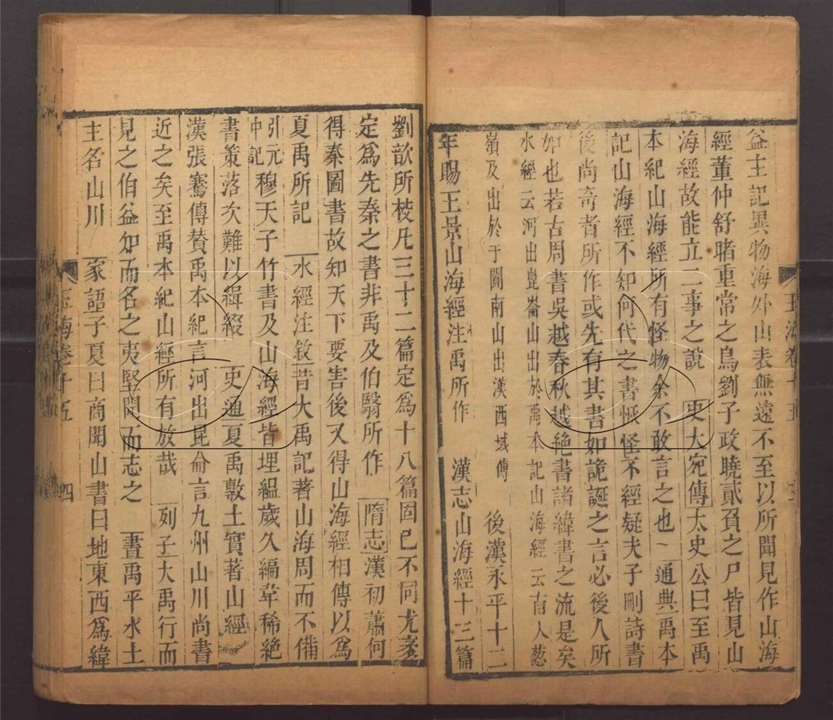 益主記異物海外山表無遠不至以所聞見作山海
經董仲舒睹重常之鳥劉子政曉貳負之尸皆見山
海經故能立二事之說 史大宛傳太史公曰至禹
本紀山海經所有怪物余不敢言之也 通典禹本
記山海經不知何代之書恢怪不經疑夫子刪詩書
後尚奇者所作或先有其書如詭誕之言必後人所
加也若古周書吳越春秋越絕書諸緯書之流是矣
水經云河出崑崙山出於禹本記山海經云南入葱
嶺及出於于闐南山出漢西域傳 後漢永平十二
年賜王景山海經注禹所作 漢志山海經十三篇
玉海卷十五 三
劉歆所校凡三十二篇定爲十八篇固已不同尤袤
定爲先秦之書非禹及伯翳所作 隋志漢初蕭何
得秦圖書故知天下要害後又得山海經相傳以爲
夏禹所記 水經注敘昔大禹記著山海周而不備
引元中記 穆天子竹書及山海經皆埋緼歲久編韋稀絕
書策落次難以緝綴 史通夏禹敷土實著山經
漢張騫傳贊禹本紀言河出昆侖言九州山川尚書
近之矣至禹本紀山經所有放哉 列子大禹行而
見之伯益知而名之夷堅聞而志之 書禹平水土
主名山川 家語子夏曰商聞山書曰地東西爲緯
玉海卷十五 四